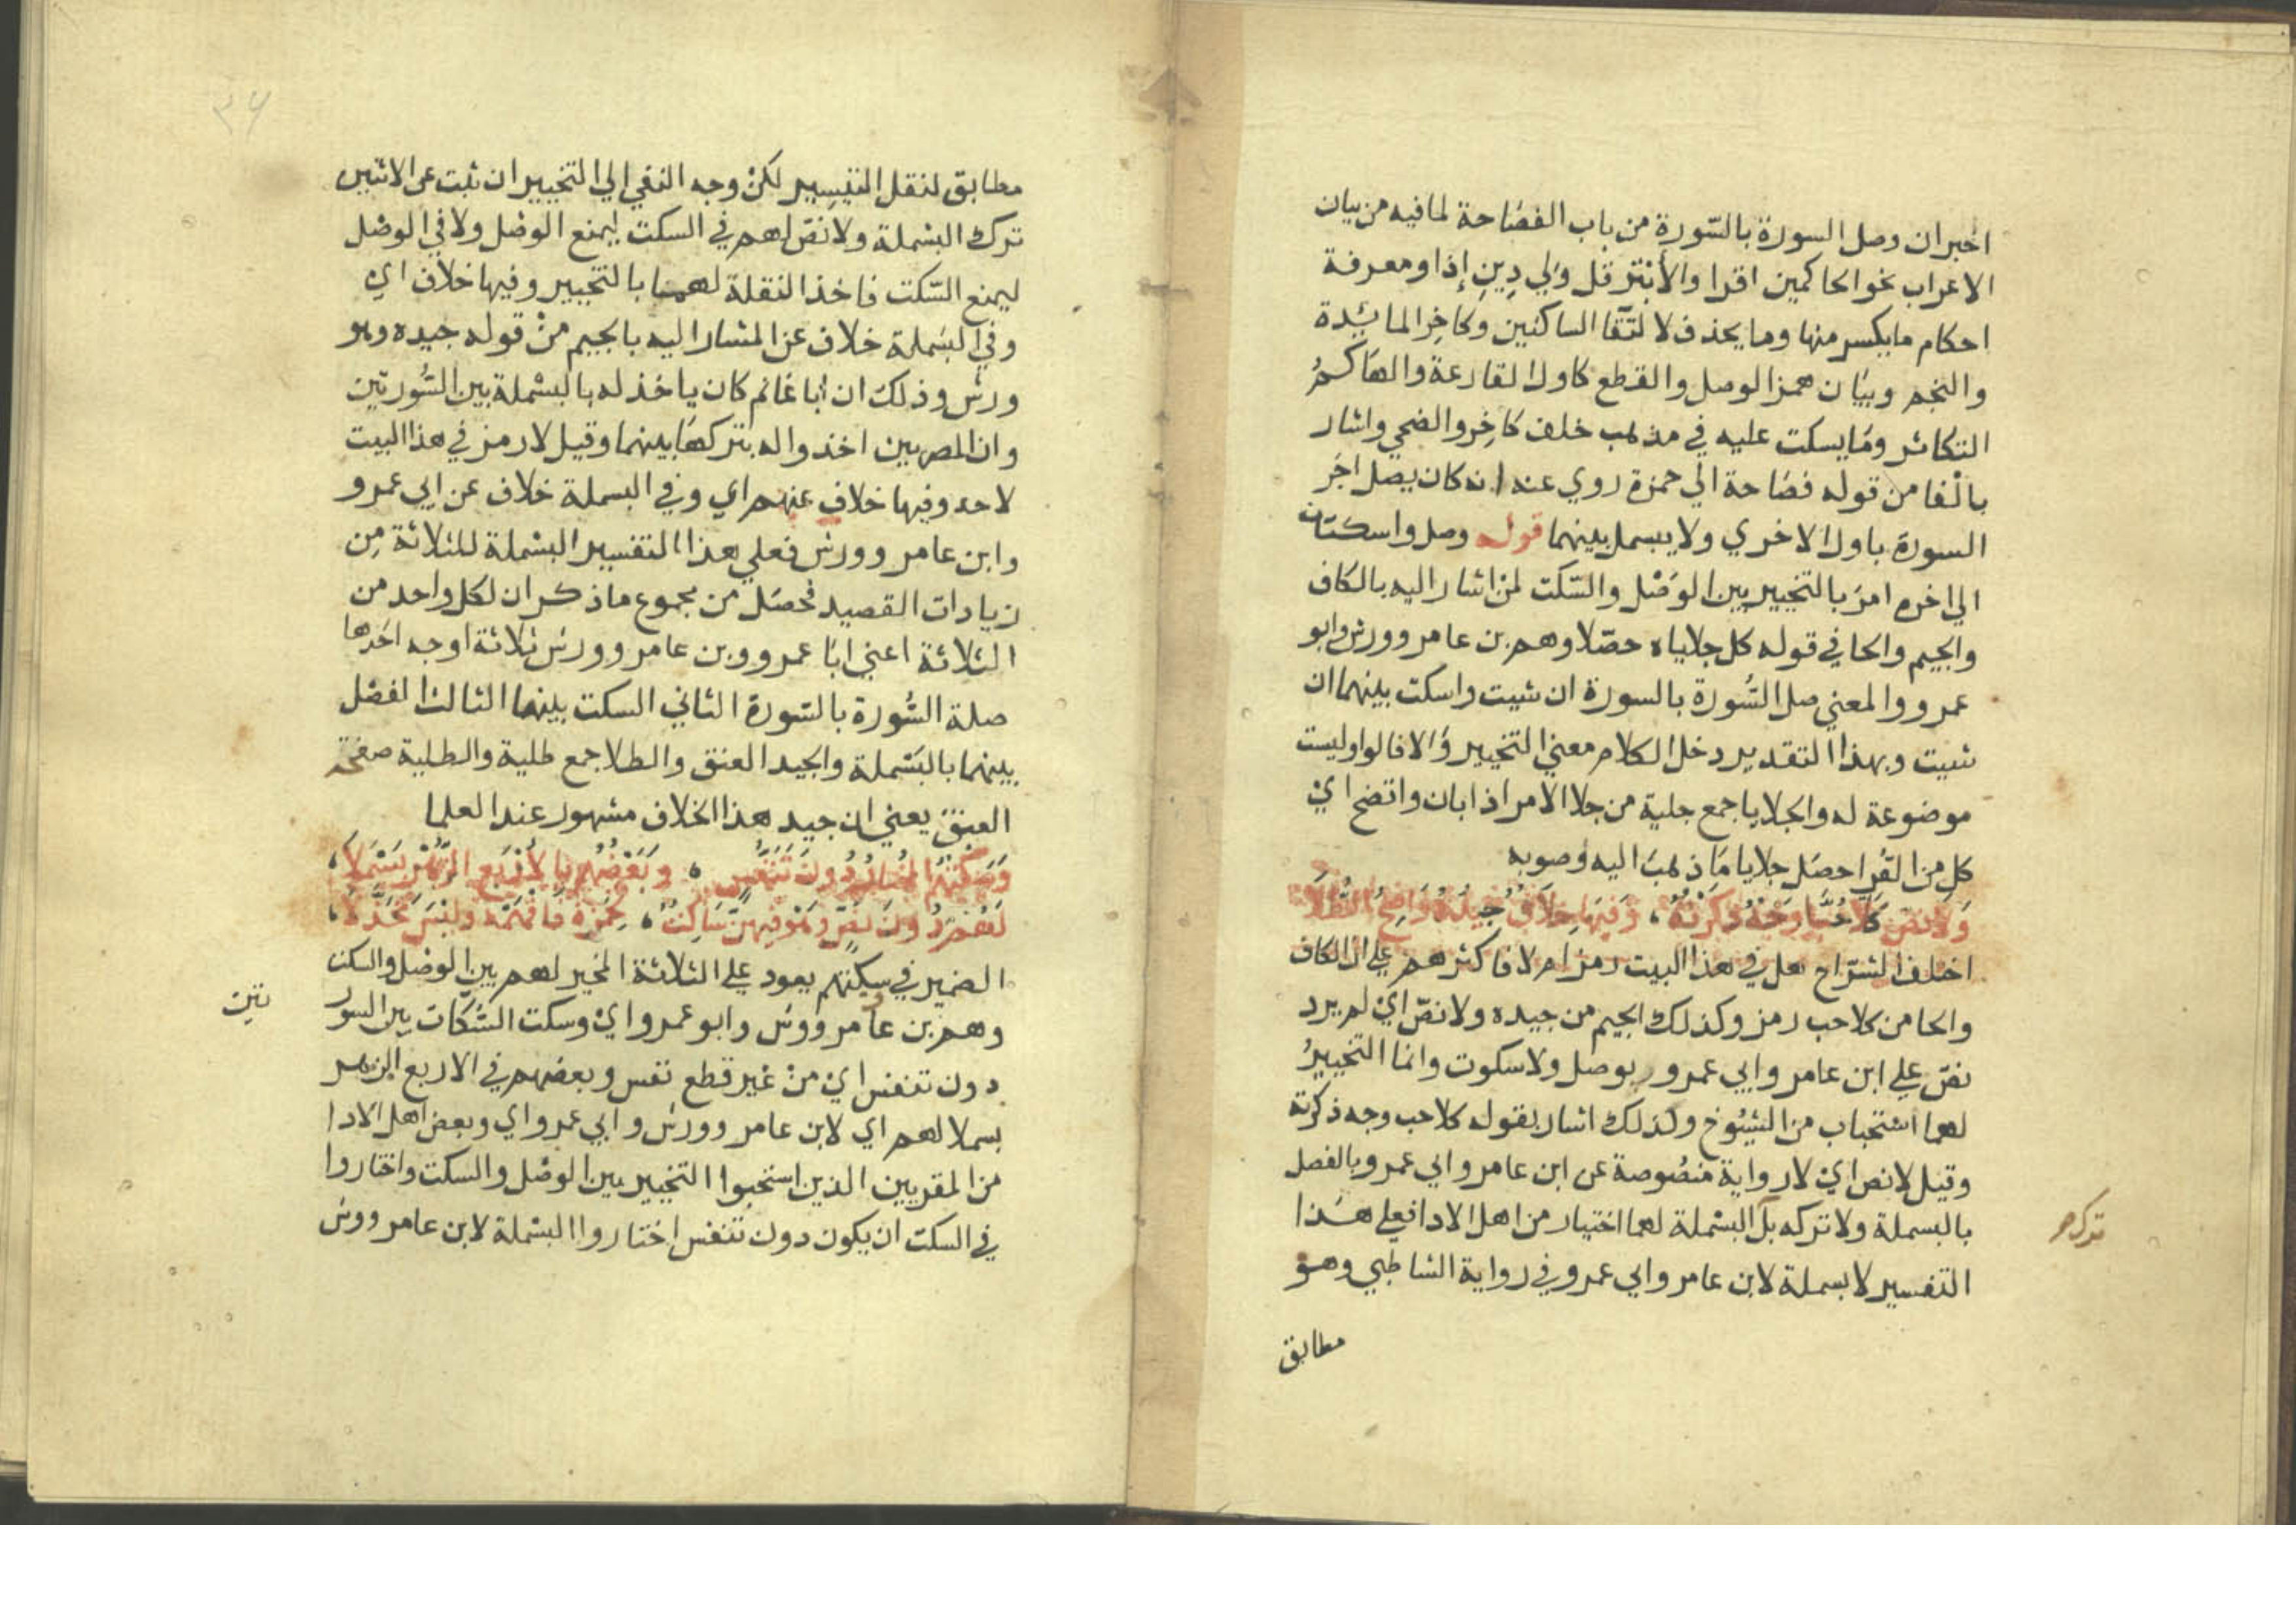 اخبر ان وصل السورة بالسّورة من باب الفصَاحة لما فيه من بيان
الاعراب نحو الحاكمين اقرا والأبْتر قل وَلي دِينِ إذا ومعرفة
احكام ما يكسر منها وما يحذف لالتقا الساكنين وكاخِر المائدة
والنجم وبيَان همز الوصل والقطع كاول القارعة والهَاكمُ
التكاثر ومَا يسكت عليه في مذهب خلف كاخِر والضحي واشار
بالْفا من قوله فصَاحة الي حمزة روي عنه انه كان يصل اخِر
السورة باول الاخري ولا يبسمل بينهما قوله وصل واسكتن
الي اخره امرَ بالتخيير بين الوَصْل والسّكت لمن اشار اليه بالكاف
والجيم والحا في قوله كل جلاياه حصّلا وهم بن عامر وورش وابو
عمرو والمعني صل السُّورة بالسورة ان شيت واسكت بينهما ان
شيت وبهذا التقدير دخل الكلام معني التخيير وَالا فالواو ليست
موضوعة له والجلايا جمع جلية من جلا الامر اذا بان واتضح ايْ
كل من القُرا حصَل جلايا مَا ذهبَ اليه وُصوبه
وَلَا نَصَّ كَلَّا حُبَّ وَجْهٌ ذَكَرْتُهُ ، وَفِيهَا خِلَافٌ جِيدُهُ وَاضِحُ الطُّلَا
اختلف الشرّاح هل في هذا البيت رمز ام لا فاكثرهم علي ان الكاف
والحا من كلا حب رمز وكذلك الجيم من جيده ولا نصّ ايْ لم يرد
نصّ علي ابن عامر وابي عمرو بوصل ولا سكوت وانما التخييرُ
لهما استحباب من الشيُوخ ولذلك اشار بقوله كلا حب وجه ذكرته
وقيل لا نص ايْ لا رواية منصُوصة عن ابن عامر وابي عمرو بالفصل
بالبسملة ولا تركه بل البسْملة لهما اختيار من اهل الادا فعلي هَذا
تركهم
التفسير لا بسملة لابن عامر وابي عمرو في رواية الشاطبي وهو
مطابق
٣٤
مطابق لنقل التيسير لكنْ وجه النفي الي التخيير ان ثبت عن الاثنين
ترك البسْملة ولا نصّ لهم في السكت ليمنع الوصْل ولا في الوصْل
ليمنع السّكت فاخذ النقلة لهما بالتخيير وفيها خلاف اي
وفي البسَملة خلاف عن المشار اليه بالجيم منْ قوله جيده وهو
ورش وذلك ان ابا غانم كان ياخذ له بالبسْملة بين السُّورتين
وان المصريين اخذوا له بتركهَا بينهما وقيل لا رمز في هذا البيت
لاحد وفيها خلاف عنهم اي وفي البسملة خلاف عن ابي عمرو
وابن عامر وورش فعلي هذا التفسير البسْملة للثلاثة مِن
زيادات القصيد فحصَل من مجموع ما ذكر ان لكل واحد من
الثلاثة اعني ابَا عمرو وبن عامر وورش ثلاثة اوجه احَدها
صلة السُّورة بالسّورة الثاني السكت بينهما الثالث الفصْل
بينهما بالبسَملة والجيد العنق والطلا جمع طلية والطلية صفحة
العنق يعني ان جيد هذا الخلاف مشهور عند العلما
وَسَكْتُهُمُ المُخْتَارُ دُونَ تَنَفُّسٍ ، وَبَعْضُهُمُ بِالأَرْبَعِ الزُّهْرِ بَسْمَلَا ،
لَهُمْ دُونَ نَصٍّ وَهْوَ فِيهِنَّ سَاكِتٌ ، لِحَمْزَةَ فَافْهَمْهُ وَلَيْسَ مُخَذَّلَا ،
الضمير في سكتهم يعود علي الثلاثة المخير لهم بين الوصْل والسكت
وهم بن عامر وورش وابو عمرو ايْ وسكت السّكات بين السور
تين
دون تنفس ايْ منْ غير قطع نفس وبعضهم في الاربع الزهر
بسملا لهم اي لابن عامر وورش وابي عمرو اي وبعض اهل الادا
من المقريين الذين استحبوا التخيير بين الوصْل والسكت واختاروا
في السكت ان يكون دون تنفس اختاروا البسْملة لابن عامر وورش